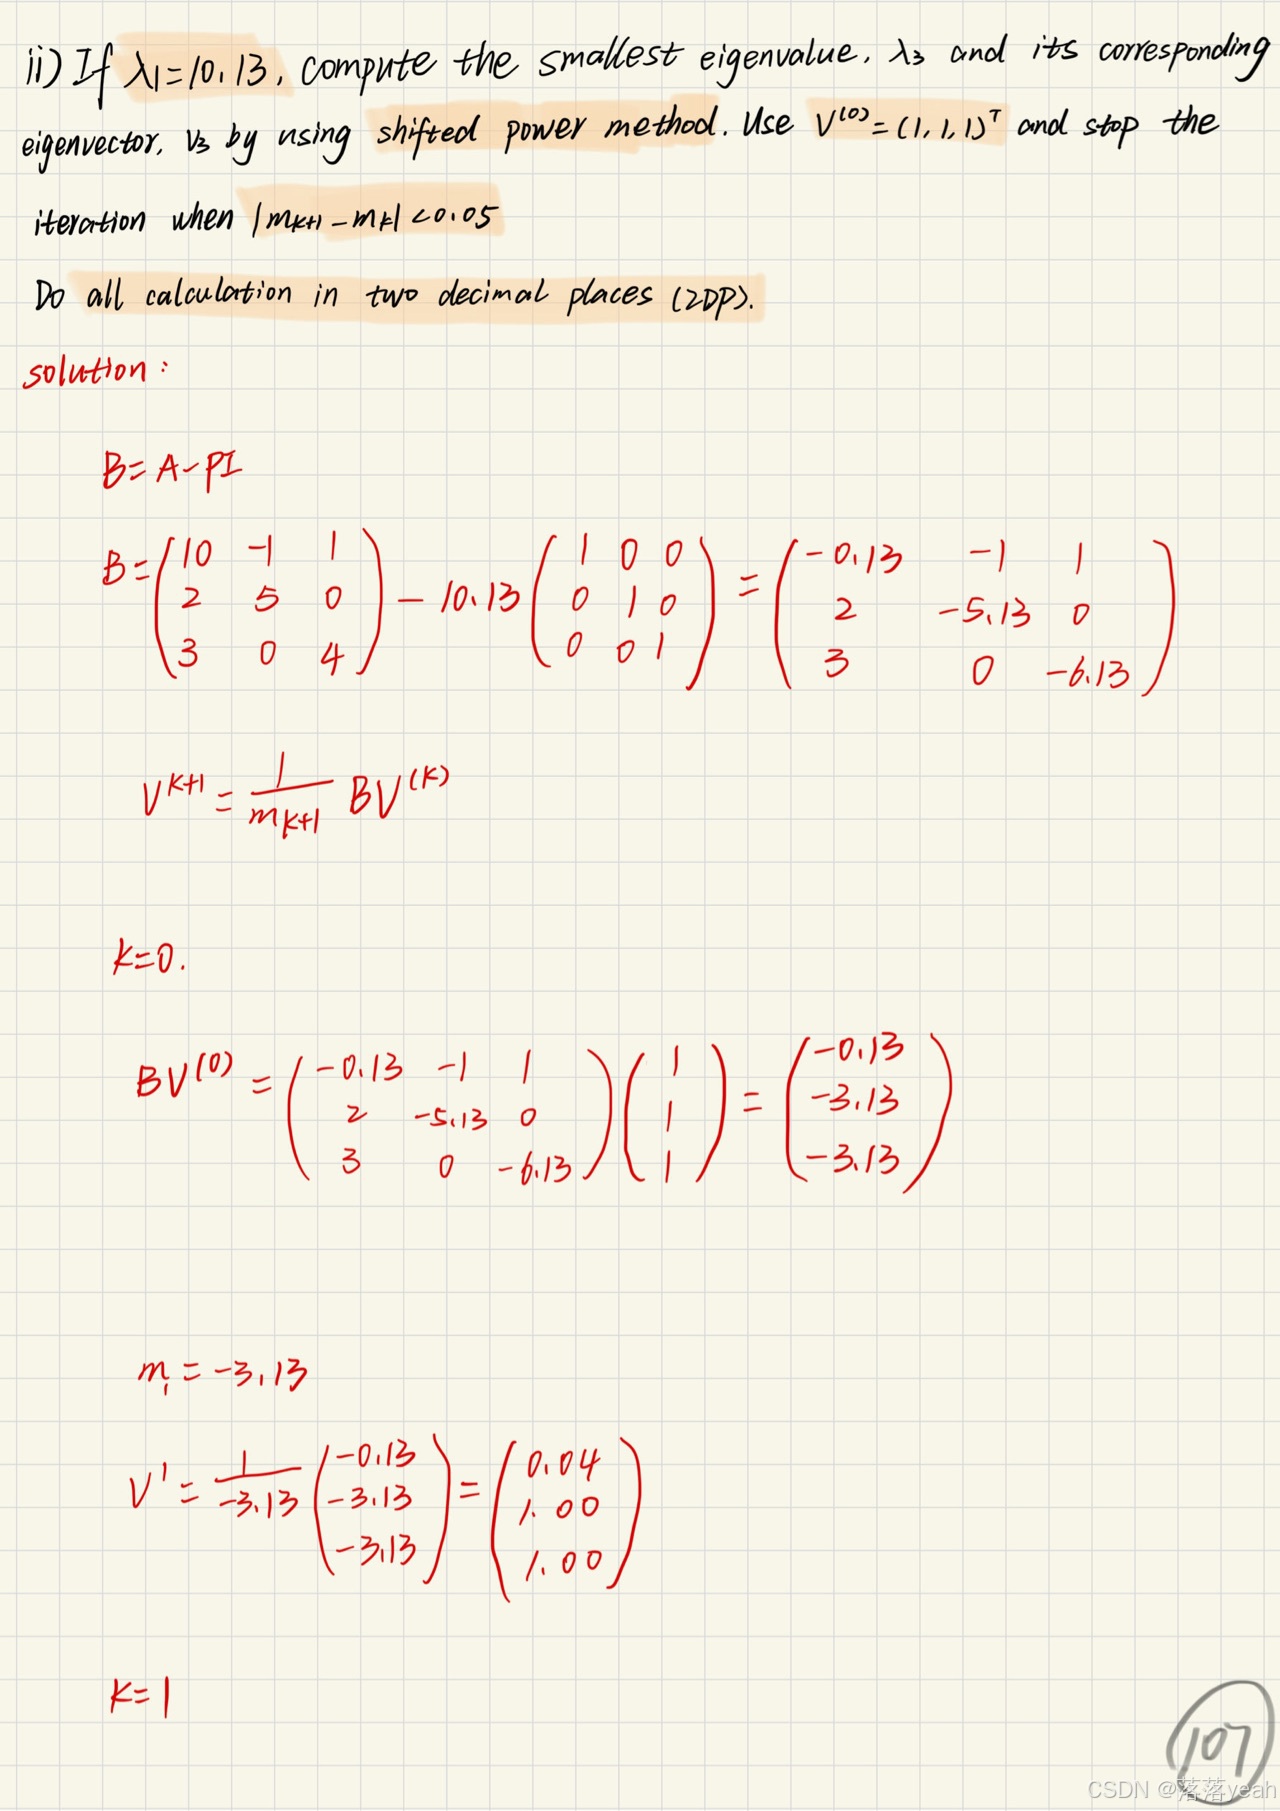 ii) If λ₁=10.13, compute the smallest eigenvalue, λ₃ and its corresponding
eigenvector, v₃ by using shifted power method. Use V⁽⁰⁾=(1,1,1)ᵀ and stop the
iteration when |mₖ₊₁-mₖ|<0.05
Do all calculation in two decimal places (2DP).
solution:
B=A-PI
B=(10 -1 1; 2 5 0; 3 0 4) - 10.13 (1 0 0; 0 1 0; 0 0 1) = (-0.13 -1 1; 2 -5.13 0; 3 0 -6.13)
V^{k+1} = 1/m_{k+1} BV^{(k)}
k=0.
BV⁽⁰⁾ = (-0.13 -1 1; 2 -5.13 0; 3 0 -6.13) (1; 1; 1) = (-0.13; -3.13; -3.13)
m₁ = -3.13
V¹ = 1/-3.13 (-0.13; -3.13; -3.13) = (0.04; 1.00; 1.00)
k=1
107
CSDN @落落yeah